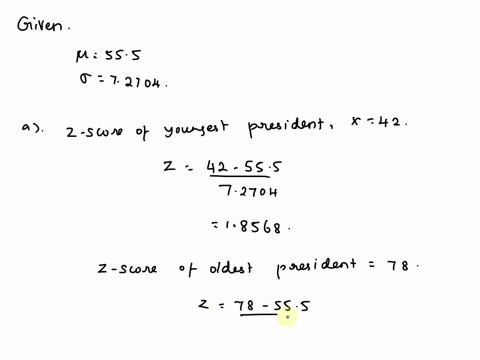 Given.
μ: 55.5
σ = 7.2704.
a). Z-score of youngest president, x = 42.
Z = 42 - 55.5
7.2704
= 1.8568.
Z-score of oldest president = 78.
Z = 78 - 55.5